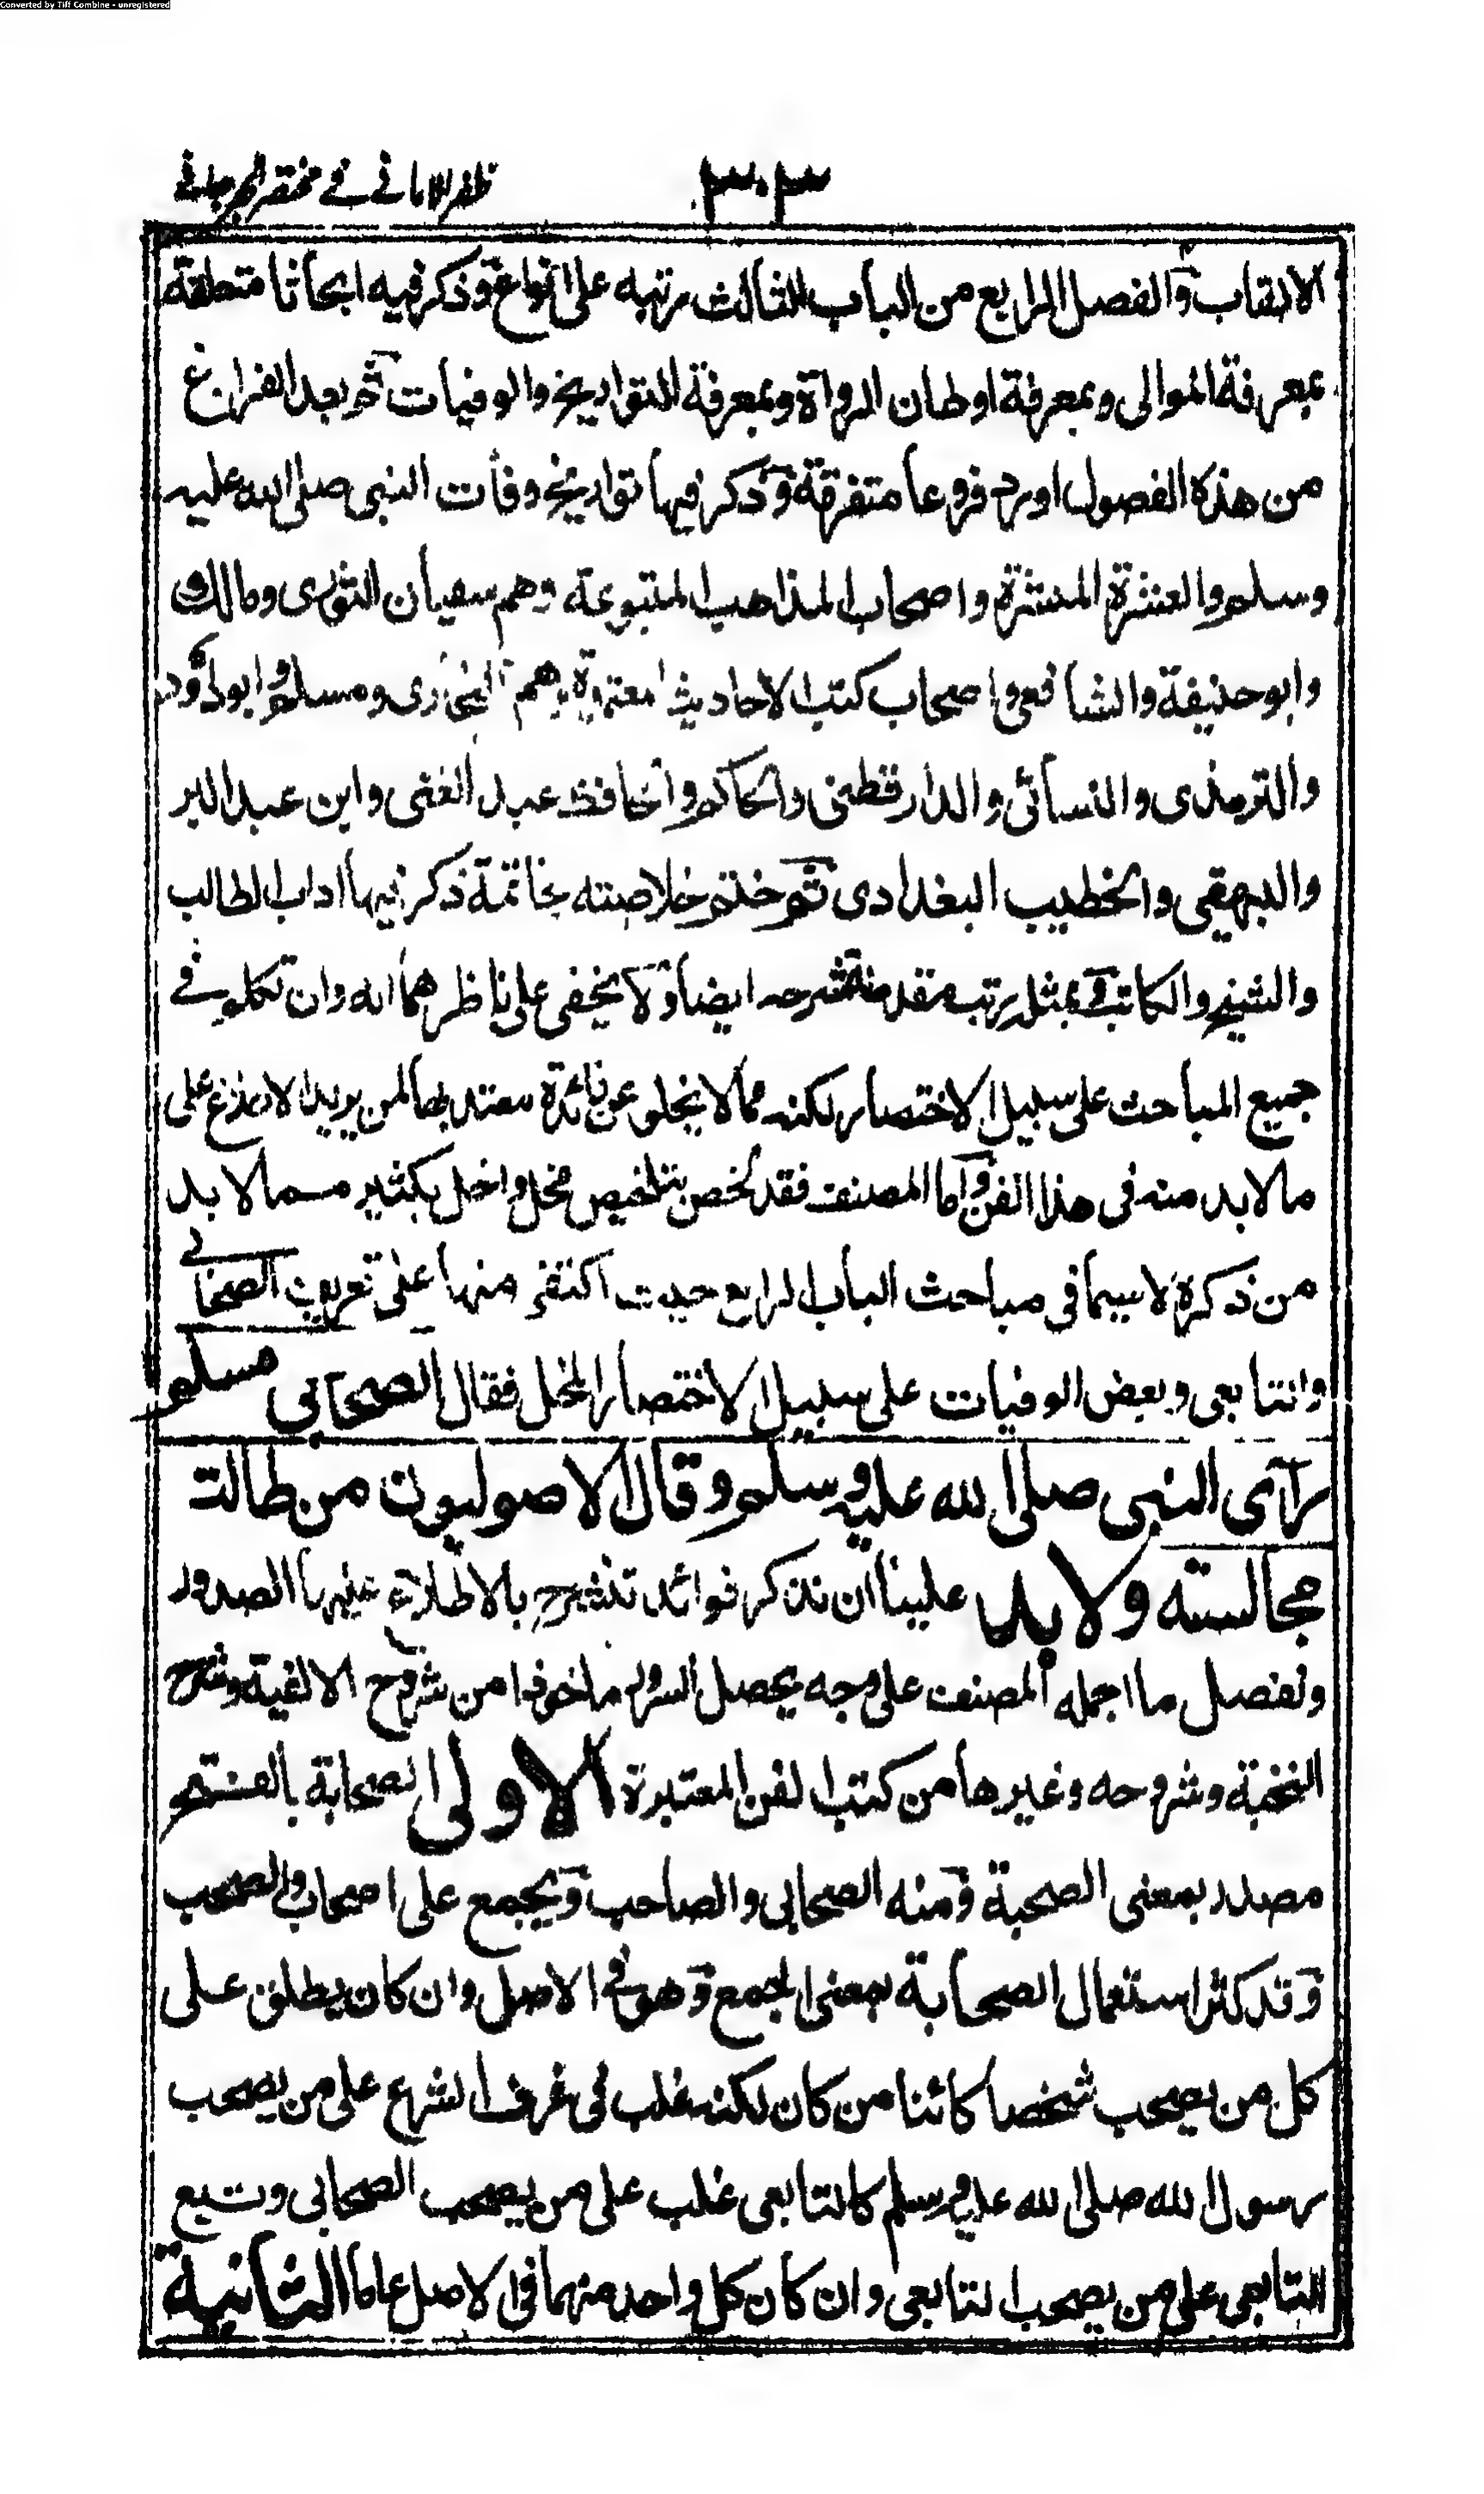 Converted by Tiff Combine - unregistered
ظفر الامانى فى مختصر الجرجانى
٣٠٣
الالقاب والفصل الرابع من الباب الثالث رتبه على انواع وذكر فيه ابحاثا متعلقة
بمعرفة الموالى وبمعرفة اوطان الرواة وبمعرفة التواريخ والوفيات ثم بعد الفراغ
من هذه الفصول اورد فروعا متفرقة وذكر فيها تواريخ وفات النبى صلى الله عليه
وسلم والعشرة المبشرة واصحاب المذاهب المتبوعة وهم سفيان الثورى ومالك و
وابو حنيفة والشافعى واصحاب كتب الاحاديث المعتبرة وهم البخارى ومسلم وابو داود
والترمذى والنسائى والدارقطنى والحاكم والحافظ عبد الغنى وابن عبد البر
والبيهقى والخطيب البغدادى ثم ختم خلاصته بخاتمة ذكر فيها اداب الطالب
والشيخ والكاتب وبمثله رتب مقدمة شرحه ايضا ولا يخفى على ناظرهما انه وان تكلم فى
جميع المباحث على سبيل الاختصار لكنه مما لا يخلو عن فائدة معتد بها لمن يريد الاطلاع على
ما لا بد منه فى هذا الفن واما المصنف فقد لخص بتلخيص مخل واخل بكثير مما لا بد
من ذكره لا سيما فى مباحث الباب الرابع حيث اكتفى منها على تعريف الصحابى
والتابعى وبعض الوفيات على سبيل الاختصار المخل فقال الصحابى مسلم
رآى النبى صلى الله عليه وسلم وقال الاصوليون من طالت
مجالسته ولا بد علينا ان نذكر فوائد تنشرح بالاطلاع عليها الصدور
ونفصل ما اجمله المصنف على وجه يحصل السرور ماخوذا من شروح الالفية وشرح
النخبة وشروحه وغيرها من كتب الفن المعتبرة الاولى الصحابة بالفتح
مصدر بمعنى الصحبة ومنه الصحابى والصاحب ويجمع على اصحاب والصحب
وقد كثر استعمال الصحابة بمعنى الجمع وهو فى الاصل وان كان يطلق على
كل من يصحب شخصا كائنا من كان لكنه غلب فى عرف الشرع على من يصحب
رسول الله صلى الله عليه وسلم كالتابعى غلب على من يصحب الصحابى وتبع
التابعى على من يصحب التابعى وان كان كل واحد منهما فى الاصل عاما الثانية